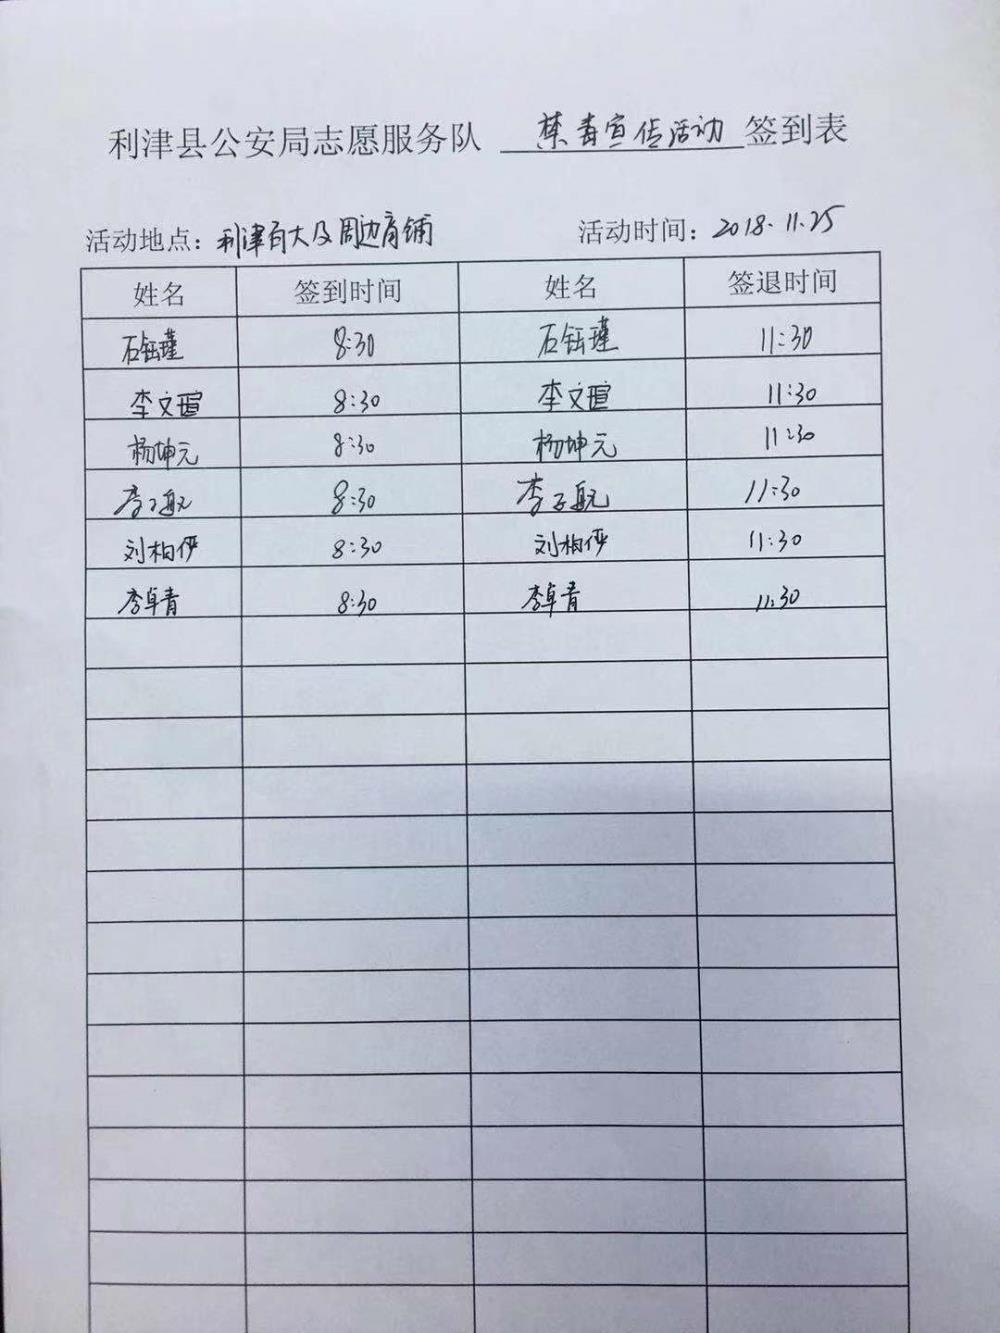 利津县公安局志愿服务队 禁毒宣传活动 签到表
活动地点：利津百大及周边商铺 活动时间：2018.11.25
姓名 签到时间 姓名 签退时间
石钰瑾 8:30 石钰瑾 11:30
李文瑄 8:30 李文瑄 11:30
杨坤元 8:30 杨坤元 11:30
李子航 8:30 李子航 11:30
刘柏伊 8:30 刘柏伊 11:30
李卓青 8:30 李卓青 11:30